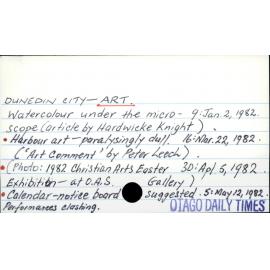 DUNEDIN CITY — ART.
Watercolour under the micro- 9: Jan. 2, 1982.
scope (article by Hardwicke Knight).
• Harbour art — paralysingly dull. 16: Mar. 22, 1982.
('Art Comment' by Peter Leech)
(Photo: 1982 Christian Arts Easter 30: Apl. 5, 1982.
Exhibition — at O.A.S. Gallery)
• Calendar-notice board suggested. 5: May 12, 1982.
Performances clashing. OTAGO DAILY TIMES